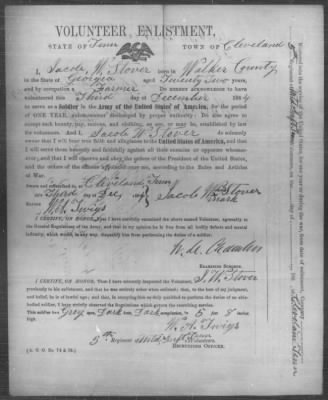 VOLUNTEER ENLISTMENT.
STATE OF Tenn TOWN OF Cleveland
I, Jacob W. Stover born in Walker County
in the State of Georgia aged Twenty two years,
and by occupation a Farmer DO HEREBY ACKNOWLEDGE to have
volunteered this Third day of December 1864
to serve as a Soldier in the Army of the United States of America, for the period
of ONE YEAR, unless sooner discharged by proper authority: Do also agree to
accept such bounty, pay, rations, and clothing, as are, or may be, established by law
for volunteers. And I, Jacob W Stover do solemnly
swear that I will bear true faith and allegiance to the United States of America, and that
I will serve them honestly and faithfully against all their enemies or opposers whomso-
ever; and that I will observe and obey the orders of the President of the United States,
and the orders of the officers appointed over me, according to the Rules and Articles
of War.
Sworn and subscribed to, at Cleveland Tenn
this Third day of Dec 1864 Jacob W Stover
BEFORE W. A. Twigs his mark
I CERTIFY, ON HONOR, That I have carefully examined the above named Volunteer, agreeably to
the General Regulations of the Army, and that in my opinion he is free from all bodily defects and mental
infirmity, which would, in any way, disqualify him from performing the duties of a soldier.
EXAMINING SURGEON.
I CERTIFY, ON HONOR, That I have minutely inspected the Volunteer, J. W. Stover
previously to his enlistment, and that he was entirely sober when enlisted; that, to the best of my judgment
and belief, he is of lawful age; and that, in accepting him as duly qualified to perform the duties of an able-
bodied soldier, I have strictly observed the Regulations which govern the recruiting service.
This soldier has Grey eyes, Dark hair, Dark complexion, is 5 feet 8 inches
high.
W. A. Twigs
5th Regiment Tenn Volunteers,
RECRUITING OFFICER.
(A. G. O. No. 74 & 76.)
Cleveland Tenn